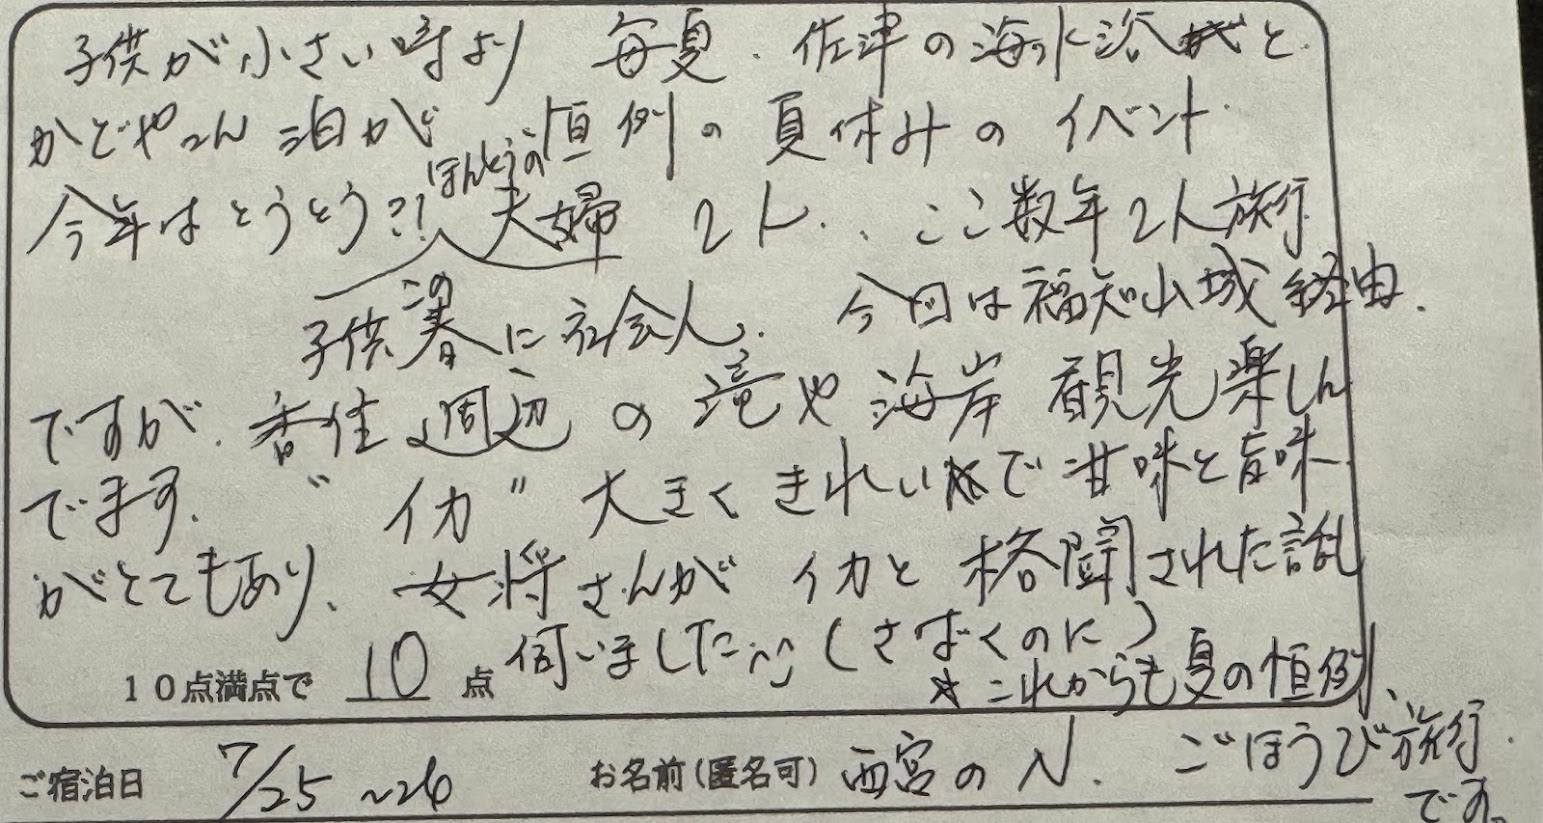 子供が小さい時より 毎夏、佐津の海水浴と
かどやさん泊が恒例の夏休みのイベント.
ほんとうの
今年はとうとう?! 夫婦 2人.. ここ数年2人旅行
この
子供春に社会人. 今回は福知山城経由.
ですが、香住周辺の滝や海岸 観光楽しん
でます. "イカ" 大きくきれいで甘味と旨味
がとてもあり、女将さんが イカと格闘された話
伺いました^^ (さばくのに)
10点満点で 10 点
☆これからも夏の恒例、
ごほうび旅行.
です。
ご宿泊日 7/25~26 お名前(匿名可) 西宮のN.